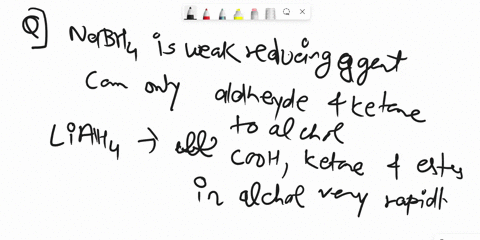 Q] NaBH4 is weak reducing agent
Can only aldheyde & ketone
to alchol
LiAlH4 → COOH, ketone & ester
in alchol very rapidt